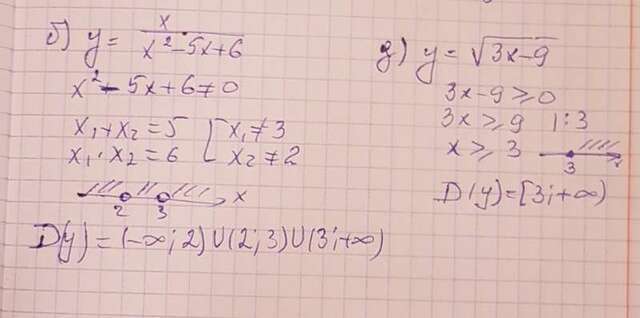 б) y = x / (x² - 5x + 6)
x² - 5x + 6 ≠ 0
x₁ + x₂ = 5 [ x₁ ≠ 3
x₁ · x₂ = 6 [ x₂ ≠ 2
2 3 x
D(y) = (-∞; 2) U (2; 3) U (3; +∞)
д) y = √(3x-9)
3x - 9 ≥ 0
3x ≥ 9 | : 3
x ≥ 3
3 x
D(y) = [3; +∞)